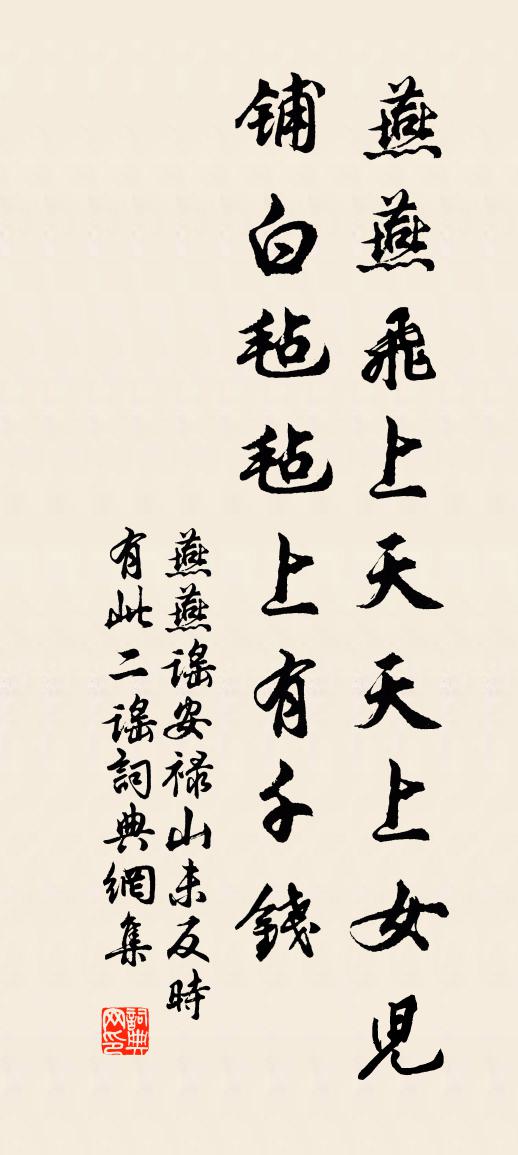 燕燕飛上天天上女兒
鋪白毡毡上有千錢
燕燕謠安禄山未反時
有此二謠詞典網集
詞典网印